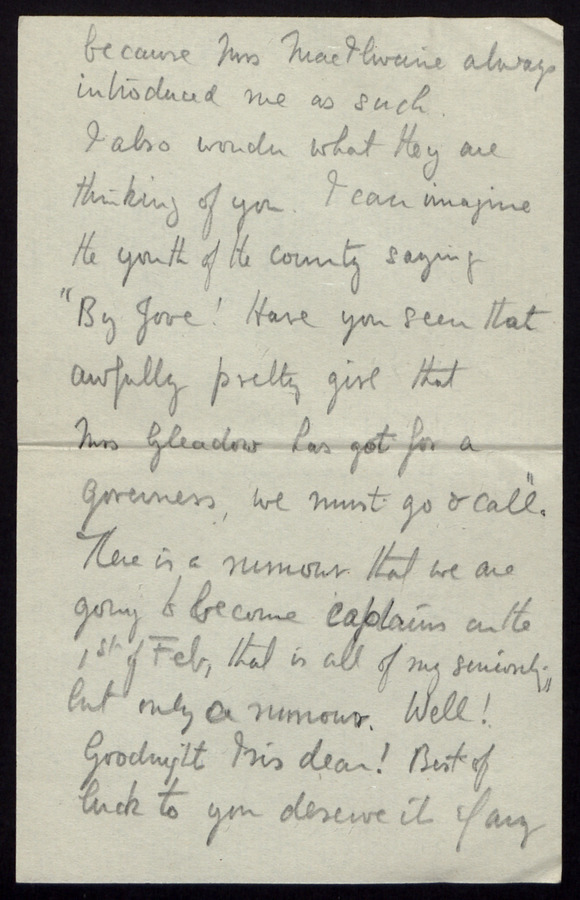 because Mrs MacIlwaine always
introduced me as such.
I also wonder what they are
thinking of you. I can imagine
the youth of the county saying
"By Jove! Have you seen that
awfully pretty girl that
Mrs Gleadow has got for a
governess, we must go & call".
There is a rumour that we are
going to become captains on the
1st of Feb, that is all of my seniority,
but only a rumour. Well!
Goodnight Iris dear! Best of
luck to you deserve it if any